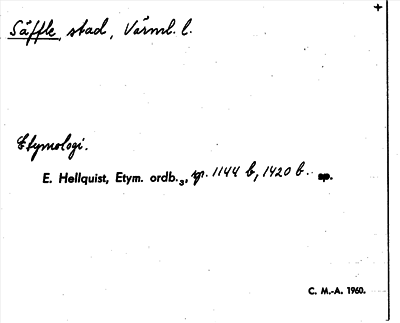 +
Säffle, stad, Värml. l.
Etymologi.
E. Hellquist, Etym. ordb.₃, sp. 1144 b, 1420 b.
C. M.-A. 1960.